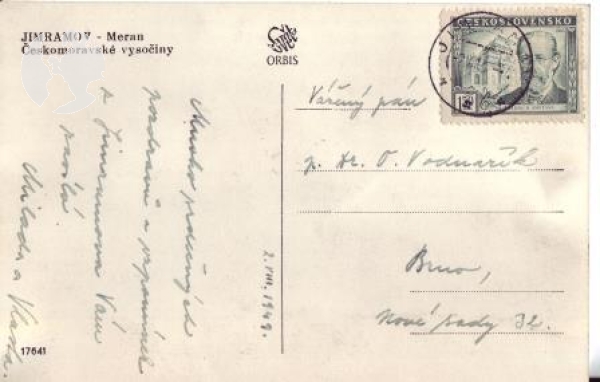 JIMRAMOV - Meran
Českomoravské vysočiny
Svět
ORBIS
ČESKOSLOVENSKO
Mnoho srdečných
pozdravů a vzpomínek
z Jimramova Vám
posílá
Milada a Vlasta.
2. VIII. 1949.
Vážený pán
p. Dr. O. Vodnařík
Brno,
Nové sady 32.
17641